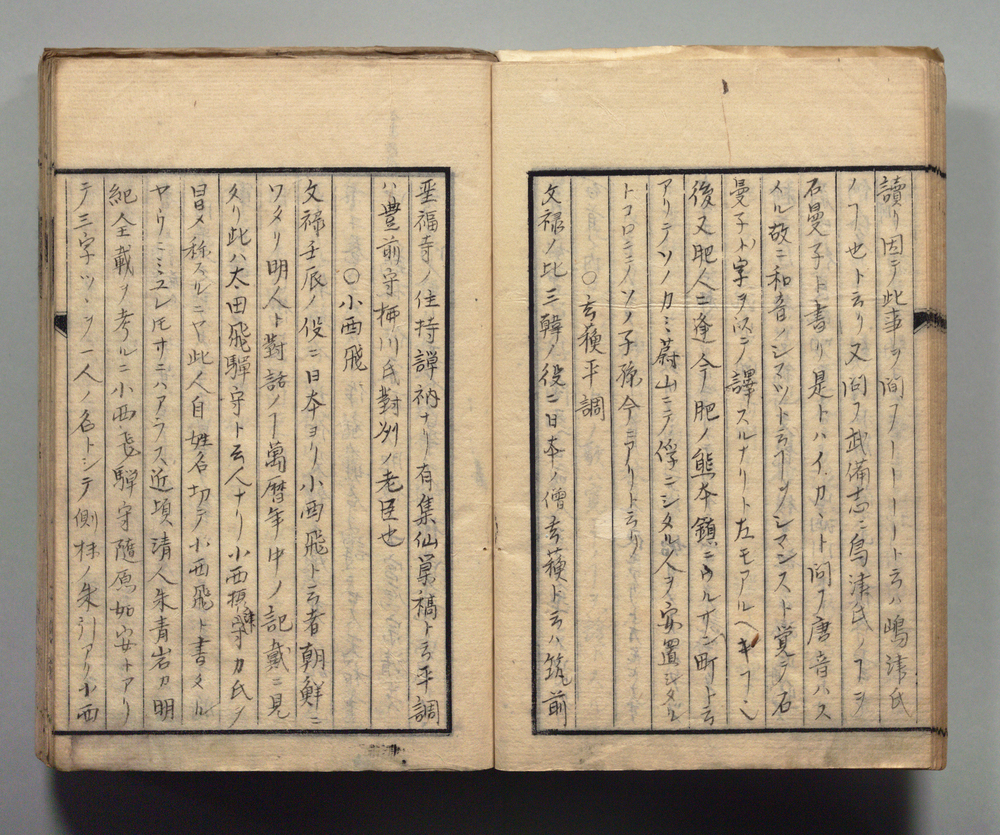 讀リ因テ此事ヲ問フーーーート云ハ嶋津氏
ノコト也ト云リ又問フ武備志ニ烏津氏ノコトヲ
石曼子ト書リ是トハイカヽト問フ唐音ハス
ヘル故ニ和音ノシマツト云フヲシマンスト覚テ石
曼子ト字ヲ以テ譯スルナリト左モアルヘキコト也
後又肥人ニ逢今肥ノ熊本鎮ニウルサン町ト云
アリテソノカミ蔚山ニテ俘ニシタル人ヲ安置シタル
トコロニテソノ子孫今ニアリト云リ
〇玄穰平調
文禄ノ比三韓ノ役ニ日本ノ僧玄蘓ト云ハ筑前
聖福寺ノ住持譚衲ナリ有集仙巣稿ト云平調
ハ豊前守柳川氏對州ノ老臣也
〇小西飛
文禄壬辰ノ役ニ日本ヨリ小西飛ト云者朝鮮ニ
ワタリ明人ト對話ノコト萬暦年中ノ記載ニ見
タリ此ハ太田飛騨守ト云人ナリ小西摂津守カ氏ヲ
冒メ称スルニヤ此人自姓名切テ小西飛ト書タル
ヤウニミユレ𪜈サニハアラス近頃清人朱青岩カ明
紀全載ヲ考ルニ小西飛騨守隨原如安トアリ
テ三字ツヽヲ一人ノ名トシテ側抹ノ朱引アリ小西